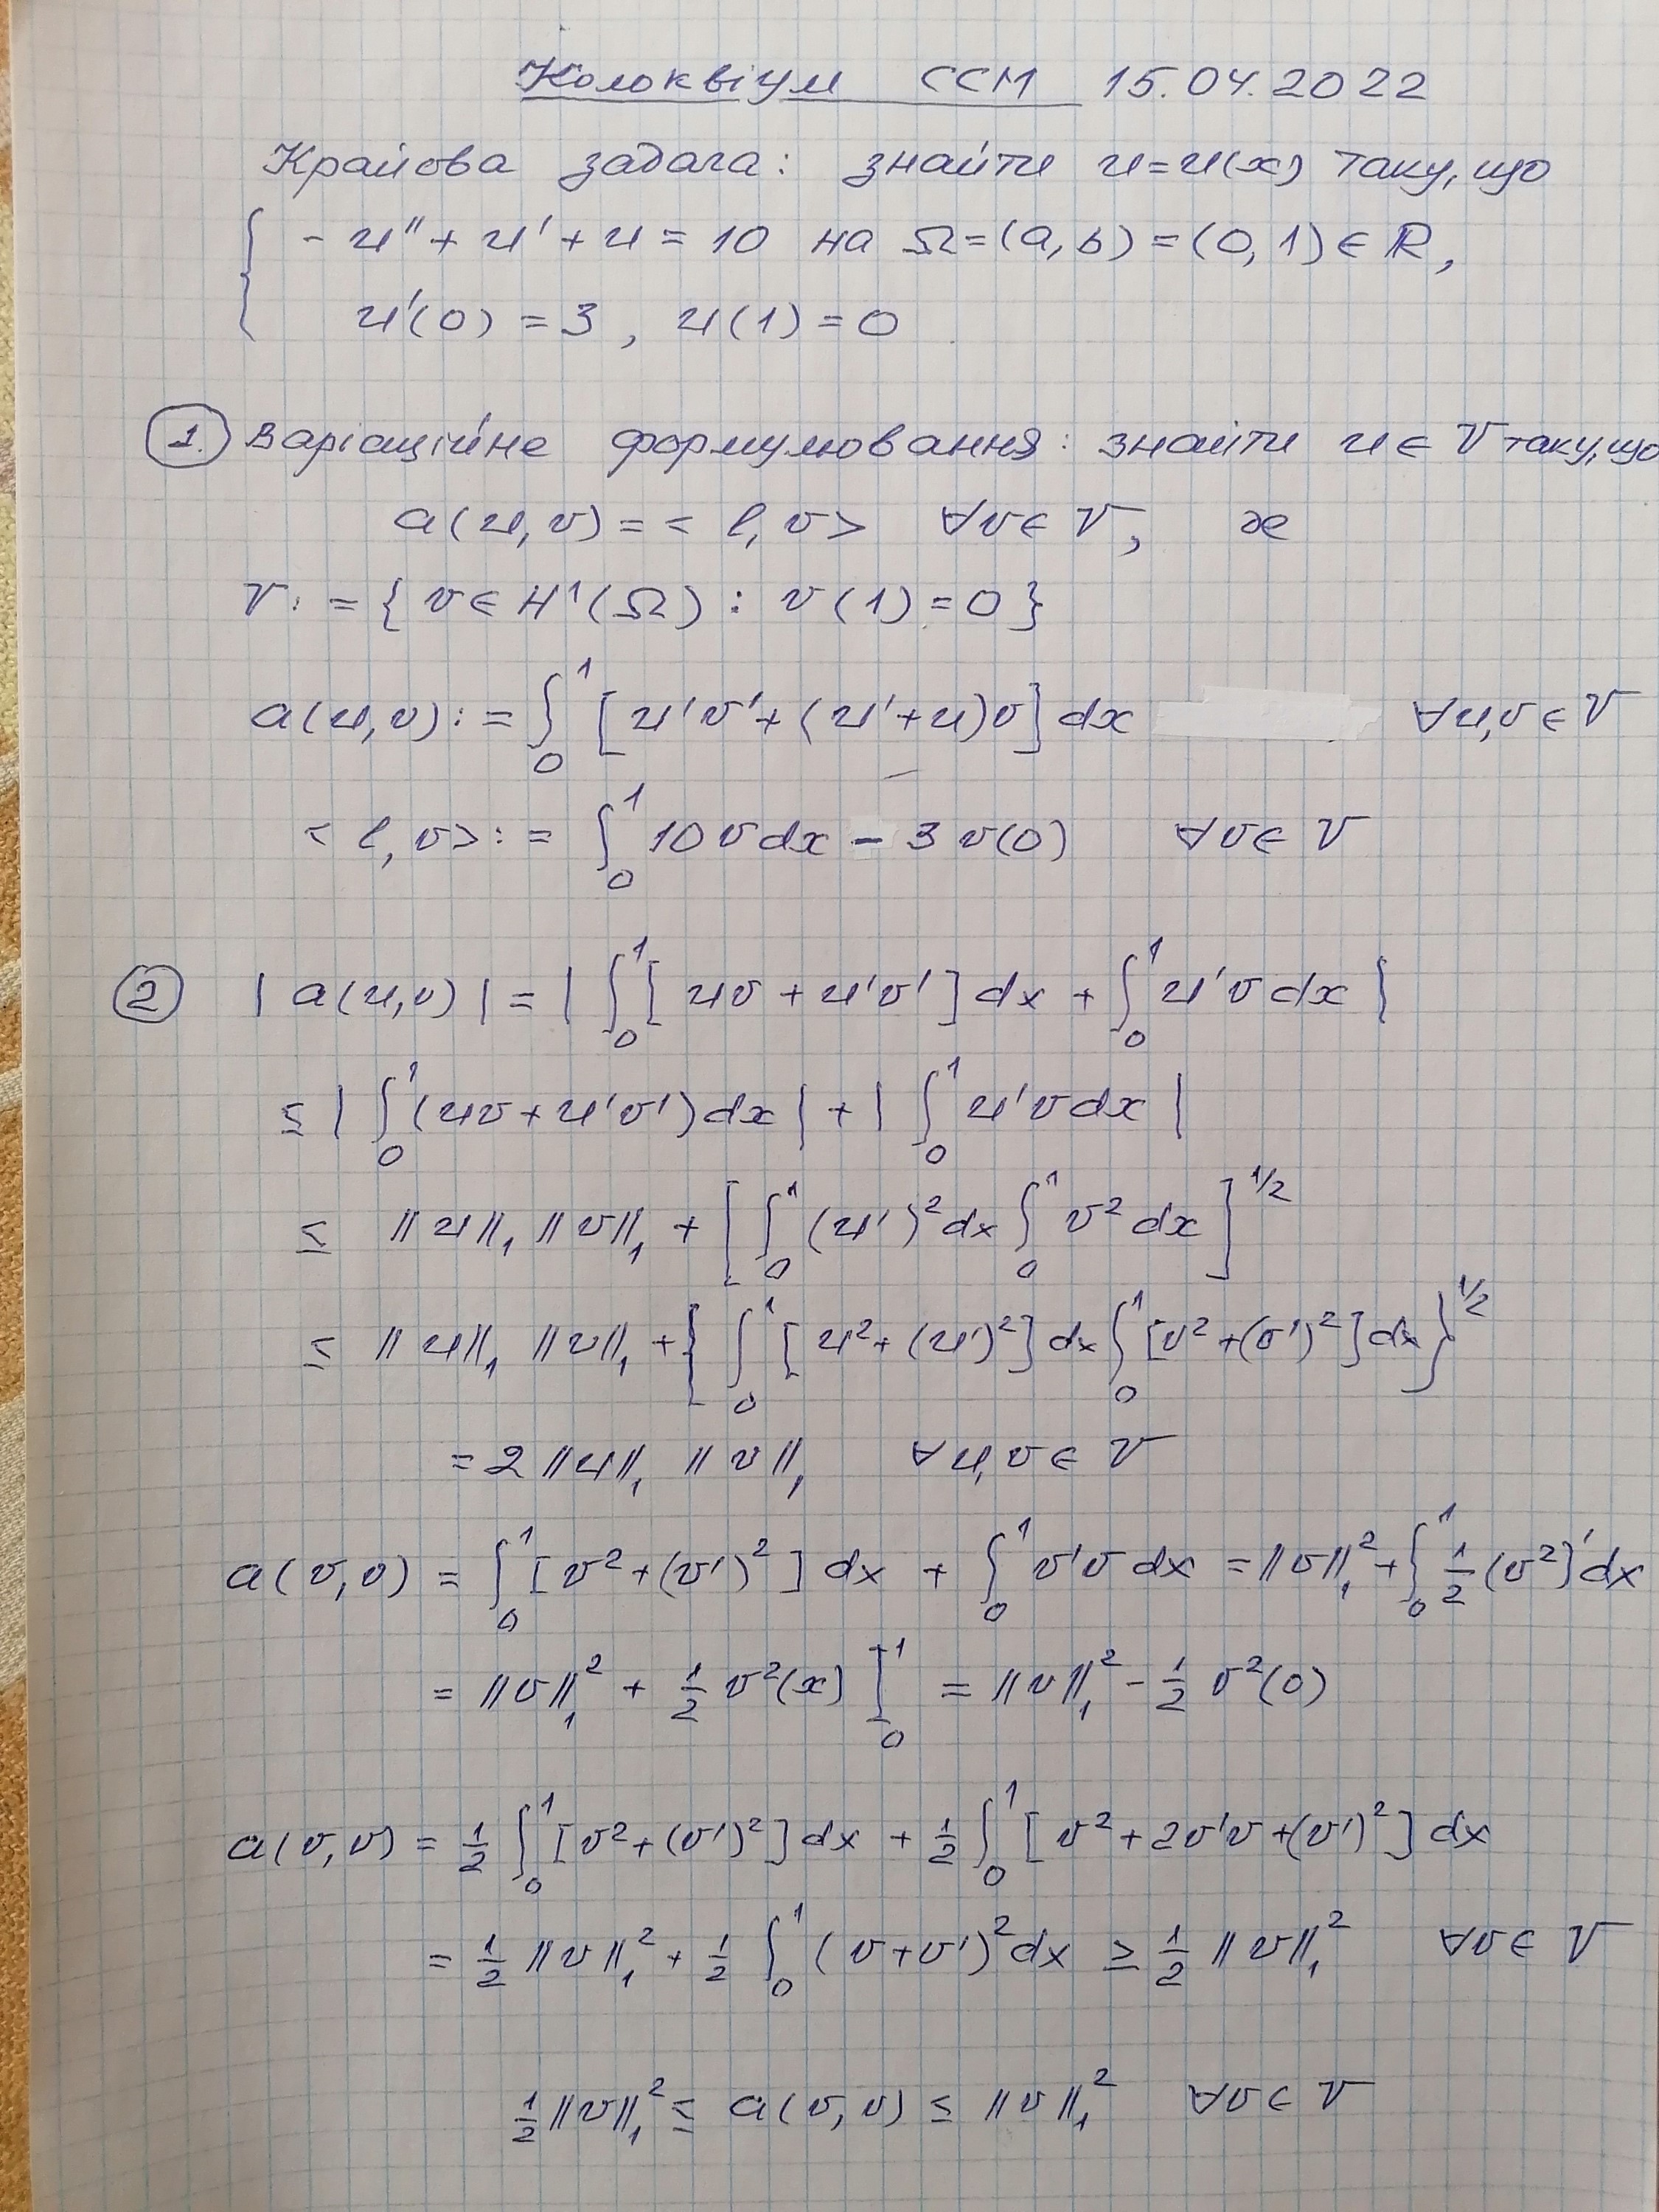 Колоквіум ССМ 15.04.2022
Крайова задача: знайти u=u(x) таку, що
{ - u'' + u' + u = 10 на Ω=(a,b)=(0,1)∈ℝ,
u'(0) = 3, u(1) = 0
1. Варіаційне формулювання: знайти u∈V таку, що
a(u,v) = <l,v> ∀v∈V,
V := {v∈H¹(Ω) : v(1)=0}
a(u,v) := ∫₀¹ [u'v' + (u'+u)v] dx ∀u,v∈V
<l,v> := ∫₀¹ 10v dx - 3v(0) ∀v∈V
2 |a(u,v)| = | ∫₀¹ [uv + u'v'] dx + ∫₀¹ u'v dx |
≤ | ∫₀¹ (uv + u'v') dx | + | ∫₀¹ u'v dx |
≤ ‖u‖₁ ‖v‖₁ + [ ∫₀¹ (u')² dx ∫₀¹ v² dx ]^1/2
≤ ‖u‖₁ ‖v‖₁ + { ∫₀¹ [u² + (u')²] dx ∫₀¹ [v² + (v')²] dx }^1/2
= 2 ‖u‖₁ ‖v‖₁ ∀u,v∈V
a(v,v) = ∫₀¹ [v² + (v')²] dx + ∫₀¹ v'v dx = ‖v‖₁² + ∫₀¹ 1/2 (v²)' dx
= ‖v‖₁² + 1/2 v²(x) ]₀¹ = ‖v‖₁² - 1/2 v²(0)
a(v,v) = 1/2 ∫₀¹ [v² + (v')²] dx + 1/2 ∫₀¹ [v² + 2v'v + (v')²] dx
= 1/2 ‖v‖₁² + 1/2 ∫₀¹ (v+v')² dx ≥ 1/2 ‖v‖₁² ∀v∈V
1/2 ‖v‖₁² ≤ a(v,v) ≤ ‖v‖₁² ∀v∈V